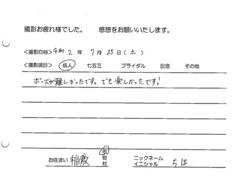 撮影お疲れ様でした。 感想をお願いいたします。
<撮影日時> 令和 2 年 7 月 25 日 ( 土 )
<撮影項目> 成人 七五三 ブライダル 記念 その他
ポーズが難しかったです。でも楽しかったです!
お住まい 稲敷 市 町 村 ニックネーム イニシャル ちほ